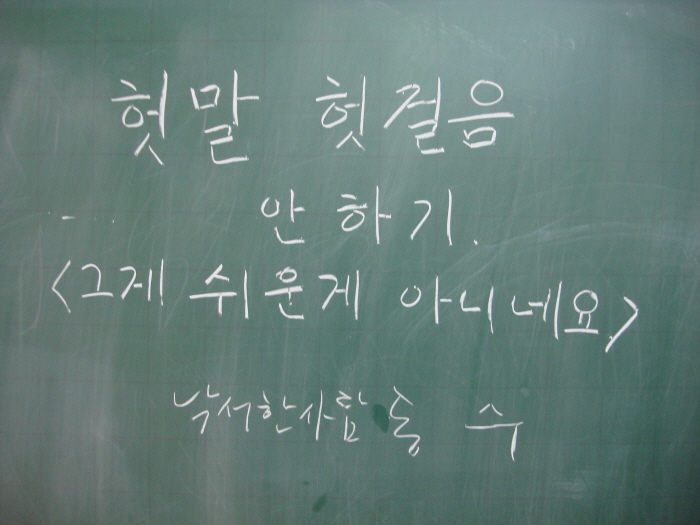 헛말 헛걸음
안 하기.
<그게 쉬운게 아니네요.>
낙서한사람 송 수